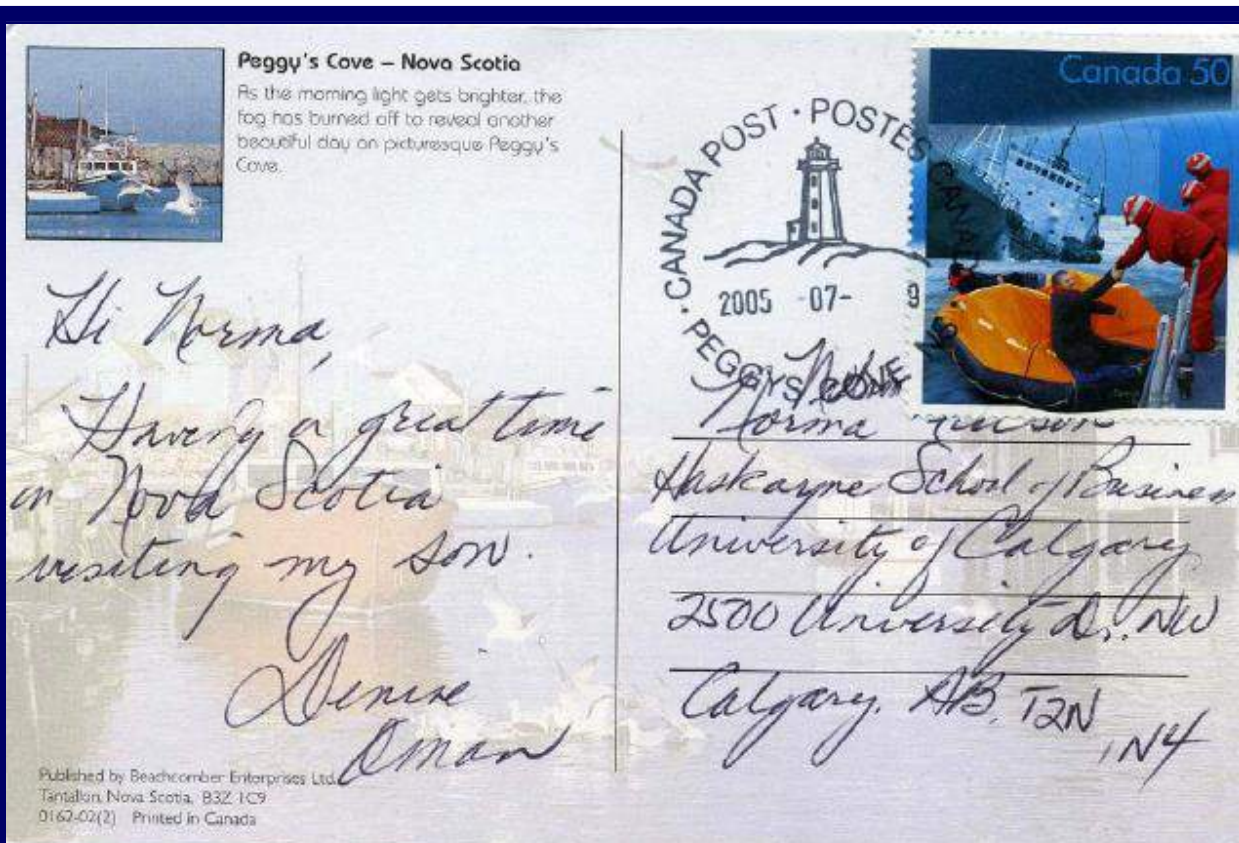 Peggy's Cove – Nova Scotia
As the morning light gets brighter, the
fog has burned off to reveal another
beautiful day on picturesque Peggy's
Cove.
Hi Norma,
Having a great time
in Nova Scotia
visiting my son.
Denise
Oman
Published by Beachcomber Enterprises Ltd.
Tantallon, Nova Scotia, B3Z 1C9
0162-02(2) Printed in Canada
CANADA POST · POSTES CANADA
2005 -07- 9
PEGGYS COVE
Canada 50
Norma
Haskayne School of Business
University of Calgary
2500 University Dr. NW
Calgary, AB, T2N
1N4